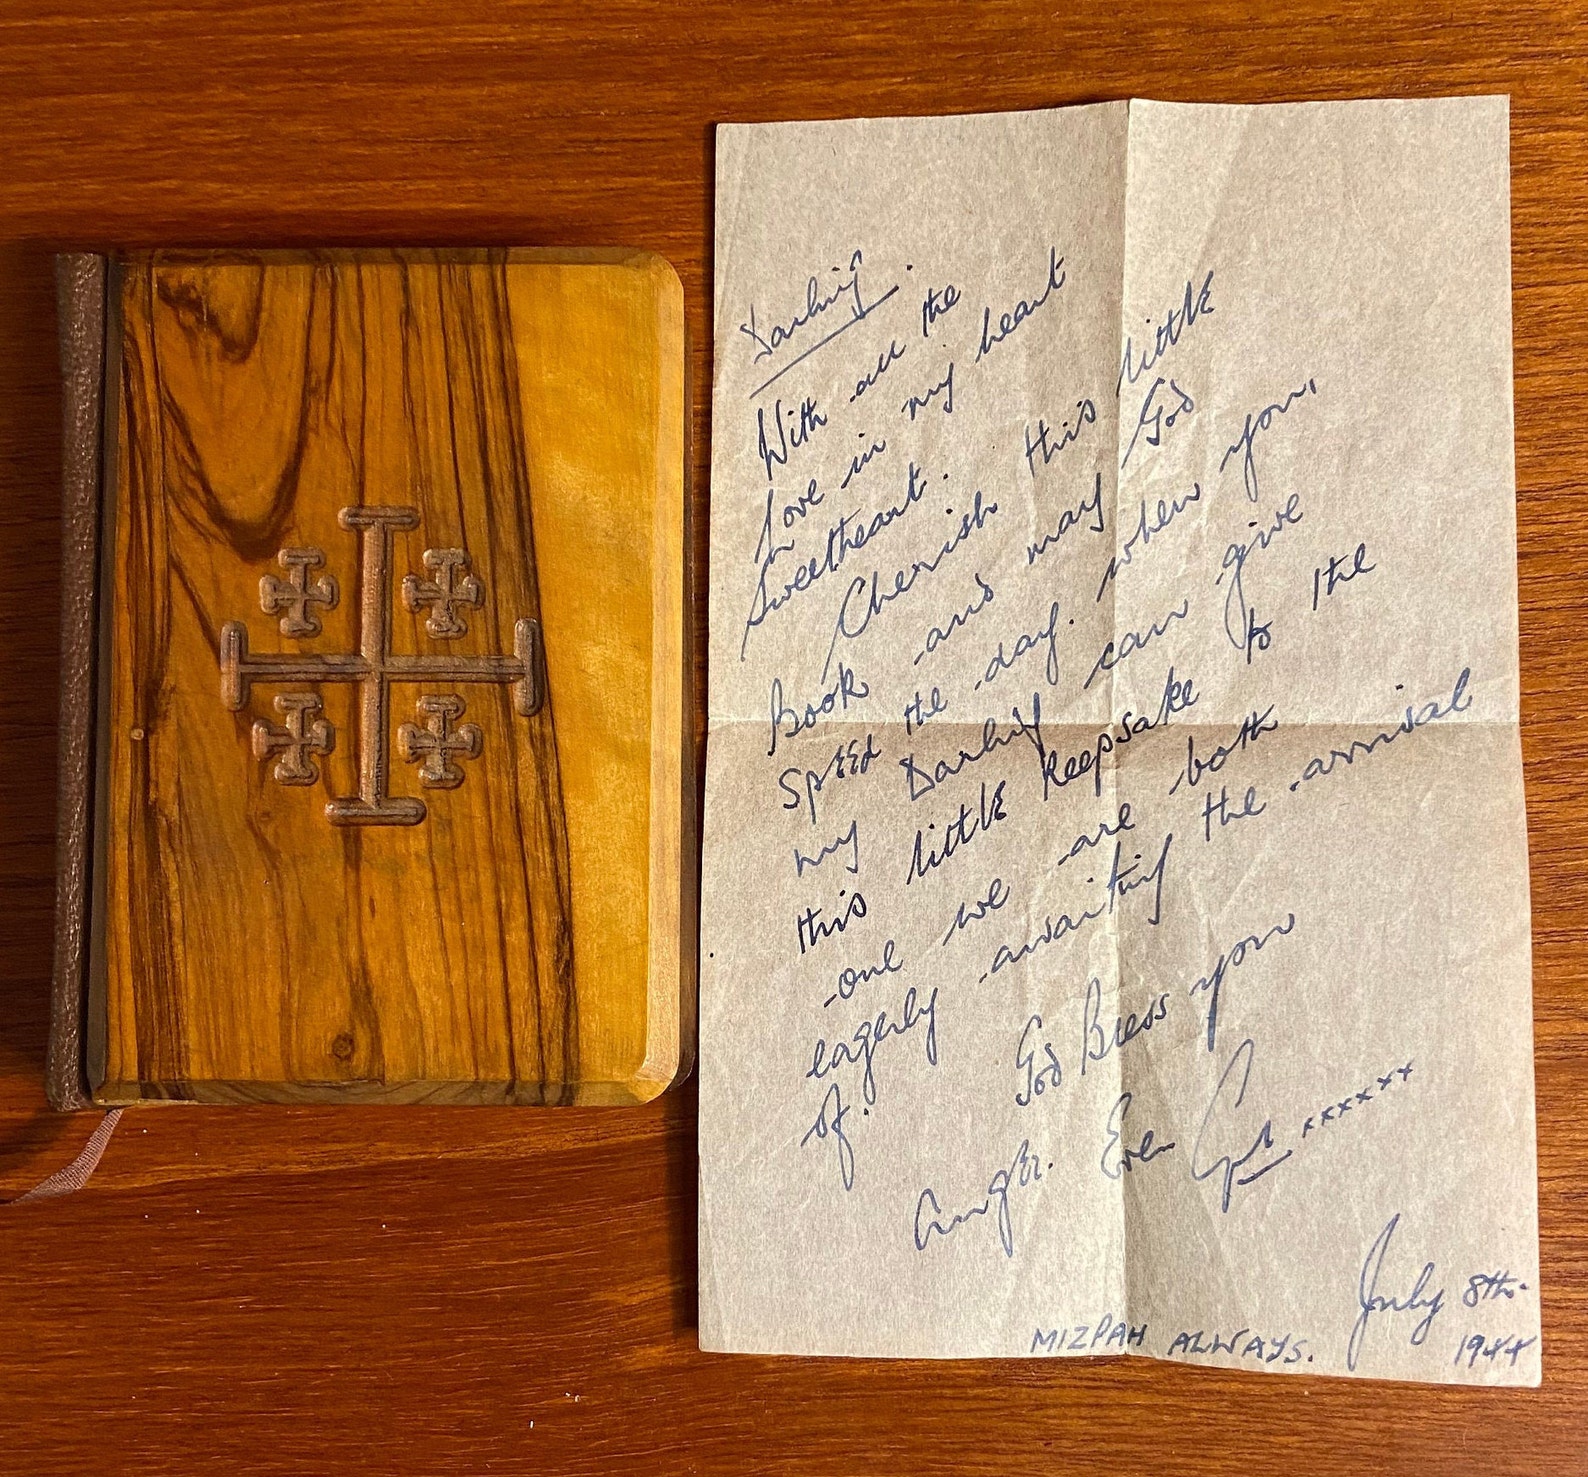 Darling.
With all the
Love in my heart
Sweetheart.
Cherish this little
Book and may God
speed the day. when you,
my Darling can give
this little keepsake to the
one we are both
eagerly awaiting the arrival
of.
God Bless you
Ever xxxxxxx
July 8th.
MIZPAH ALWAYS. 1944